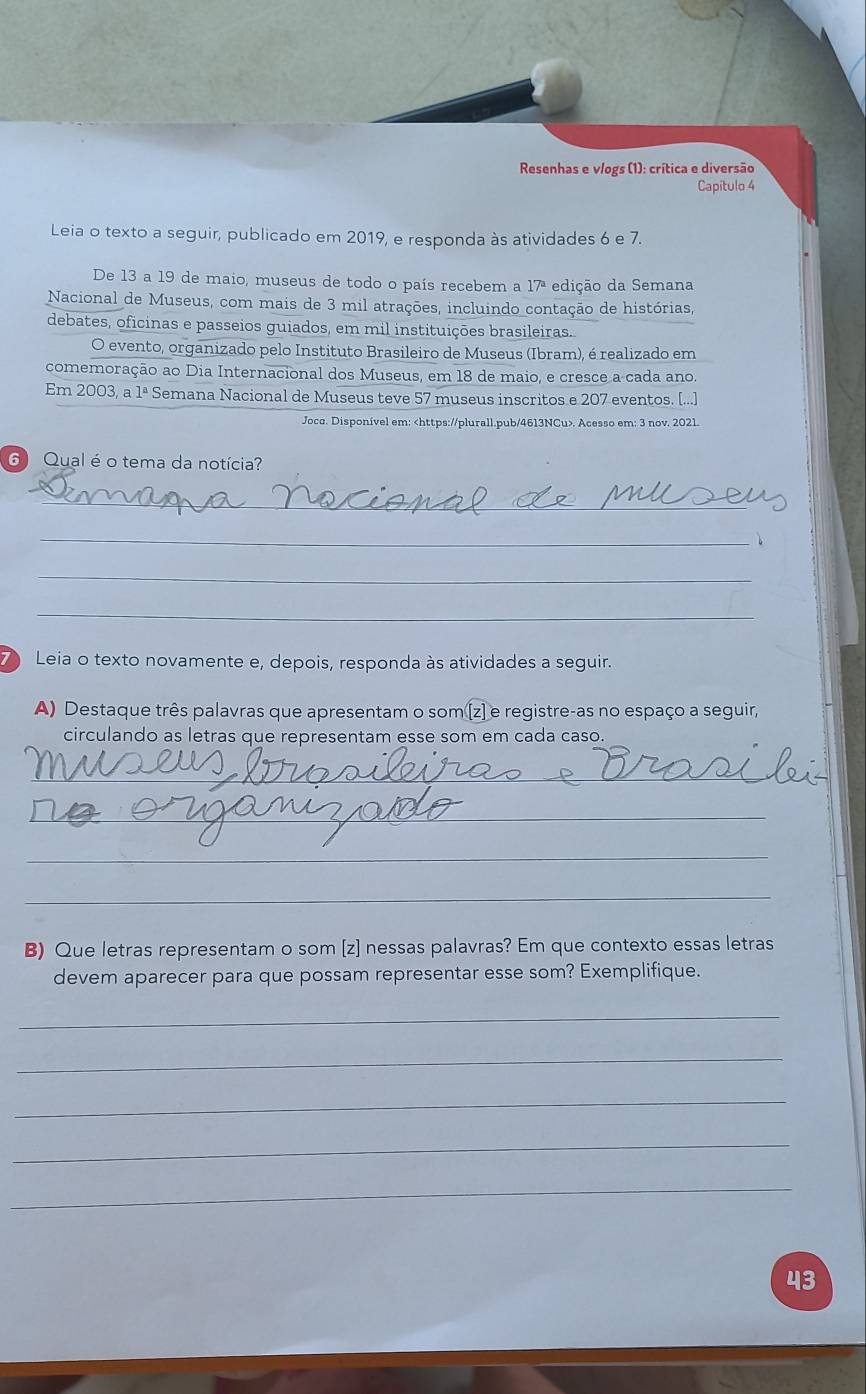 Resenhas e vlogs (1): crítica e diversão
Capítulo 4
Leia o texto a seguir, publicado em 2019, e responda às atividades 6 e 7.
De 13 a 19 de maio, museus de todo o país recebem a 17ª edição da Semana
Nacional de Museus, com mais de 3 mil atrações, incluindo contação de histórias,
debates, oficinas e passeios guiados, em mil instituições brasileiras.
O evento, organizado pelo Instituto Brasileiro de Museus (Ibram), é realizado em
comemoração ao Dia Internacional dos Museus, em 18 de maio, e cresce a cada ano.
Em 2003, a 1ª Semana Nacional de Museus teve 57 museus inscritos e 207 eventos. [...]
Joca. Disponível em: <https://plurall.pub/4613NCu>. Acesso em: 3 nov. 2021.
6 Qual é o tema da notícia?
Semana nacional de museus
7 Leia o texto novamente e, depois, responda às atividades a seguir.
A) Destaque três palavras que apresentam o som [z] e registre-as no espaço a seguir,
circulando as letras que representam esse som em cada caso.
museus, brasileiras e Brasilei-
ro organizado
B) Que letras representam o som [z] nessas palavras? Em que contexto essas letras
devem aparecer para que possam representar esse som? Exemplifique.
43